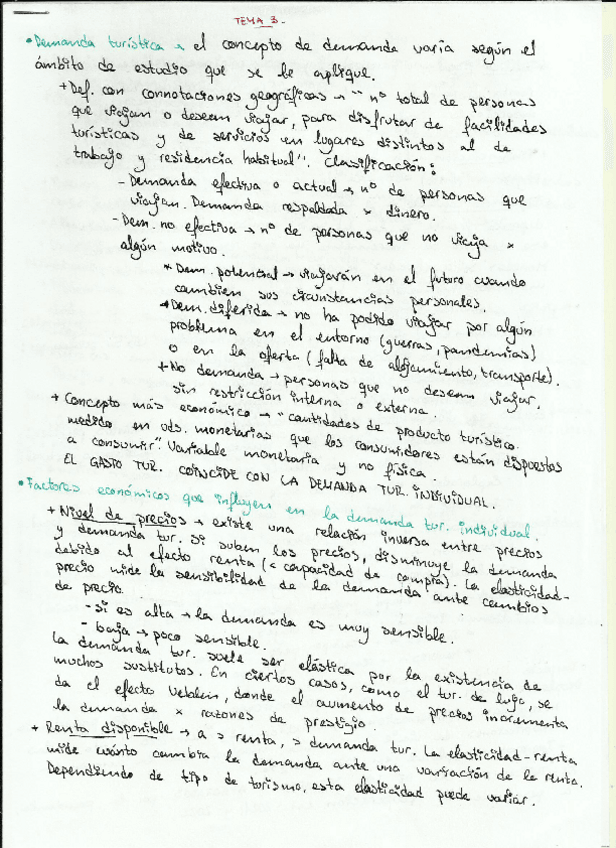 TEMA 3.-
• Demanda turística → el concepto de demanda varía según el
ámbito de estudio que se le aplique.
+ Def. con connotaciones geográficas → "nº total de personas
que viajan o desean viajar, para disfrutar de facilidades
turísticas y de servicios en lugares distintos al de
trabajo y residencia habitual". Clasificación:
- Demanda efectiva o actual → nº de personas que
viajan. Demanda respaldada x dinero.
- Dem. no efectiva → nº de personas que no viaja x
algún motivo.
* Dem. potencial → viajarán en el futuro cuando
cambien sus circunstancias personales.
* Dem. diferida → no ha podido viajar por algún
problema en el entorno (guerras, pandemias)
o en la oferta (falta de alojamiento, transporte).
* No demanda → personas que no desean viajar,
sin restricción interna o externa.
+ Concepto más económico → "cantidades de producto turístico
medido en uds. monetarias que los consumidores están dispuestos
a consumir". Variable monetaria y no física.
EL GASTO TUR. COINCIDE CON LA DEMANDA TUR. INDIVIDUAL.
• Factores económicos que influyen en la demanda tur. individual.
+ Nivel de precios → existe una relación inversa entre precios
y demanda tur. Si suben los precios, disminuye la demanda
debido al efecto renta (< capacidad de compra). La elasticidad-
precio mide la sensibilidad de la demanda ante cambios
de precio.
- si es alta → la demanda es muy sensible.
- baja → poco sensible.
La demanda tur. suele ser elástica por la existencia de
muchos sustitutos. En ciertos casos, como el tur. de lujo, se
da el efecto Veblen, donde el aumento de precios incrementa
la demanda x razones de prestigio.
+ Renta disponible → a > renta, > demanda tur. La elasticidad-renta
mide cuánto cambia la demanda ante una variación de la renta.
Dependiendo de tipo de turismo, esta elasticidad puede variar.